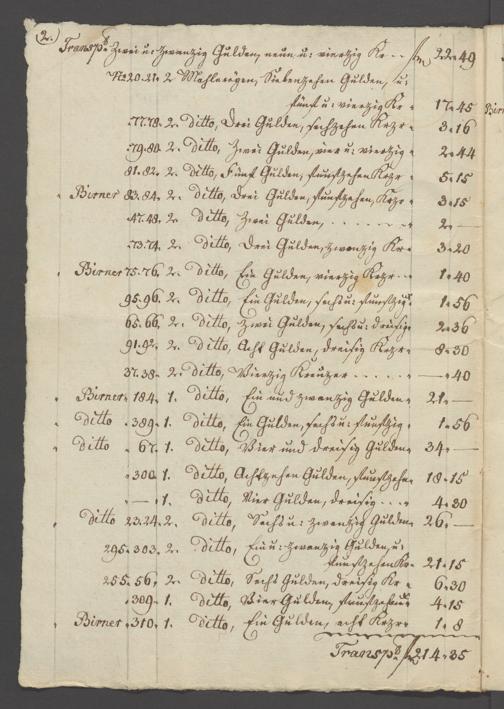 2.
Transp: Zwei u: zwanzig Gulden, neun u: vierzig Kr - - fl 22 " 49
No 20.21. 2 Mahlereyen, Siebenzehen Gulden, u:
fünf u: vierzig Kr " 17 " 45
" 77.78. 2. ditto, Drei Gulden, sechzehen Krzr " 3 " 16
" 79.80. 2. ditto, Zwei Gulden, vier u: vierzig " 2 " 44
81.82. 2. ditto, Fünf Gulden, funfzehen Krzr " 5 " 15
" Birner 83.84. 2. ditto, Drei Gulden, funfzehen, Krzr " 3 " 15
" 47.48. 2. ditto, Zwei Gulden, - - - - - - " 2 " —
" 73.74. 2. ditto, Drei Gulden, zwanzig Kr " 3 " 20
" Birner 75.76. 2. ditto, Ein Gulden, vierzig Krzr - - " 1 " 40
95.96. 2. ditto, Ein Gulden, sechs u: funfzig " 1 " 56
65.66. 2. ditto, Zwei Gulden, sechs u: dreisig " 2 " 36
91.92. 2. ditto, Acht Gulden, dreisig Krzr " 8 " 30
37.38. 2. ditto, Vierzig Kreuzer - - - - - " — " 40
" Birner " 184. 1. ditto, Ein und zwanzig Gulden " 21 " —
" ditto " 389. 1. ditto, Ein Gulden, sechs u: funfzig " 1 " 56
" ditto " 67. 1. ditto, Vier und dreisig Gulden " 34 " —
" 300. 1. ditto, Achtzehen Gulden, funfzehen 18 " 15
" — " 1. ditto, Vier Gulden, dreisig - - - " 4 " 30
ditto 23.24. 2. ditto, Sechs u: zwanzig Gulden " 26 " —
295.303. 2. ditto, Ein u: zwanzig Gulden, u:
funfzehen Kr " 21 " 15
255.56. 2. ditto, Sechs Gulden, dreisig Kr " 6 " 30
" 309. 1. ditto, Vier Gulden, funfzehen " 4 " 15
" Birner " 310. 1. ditto, Ein Gulden, acht Krzr " 1 " 8
Transp: fl 214 " 35